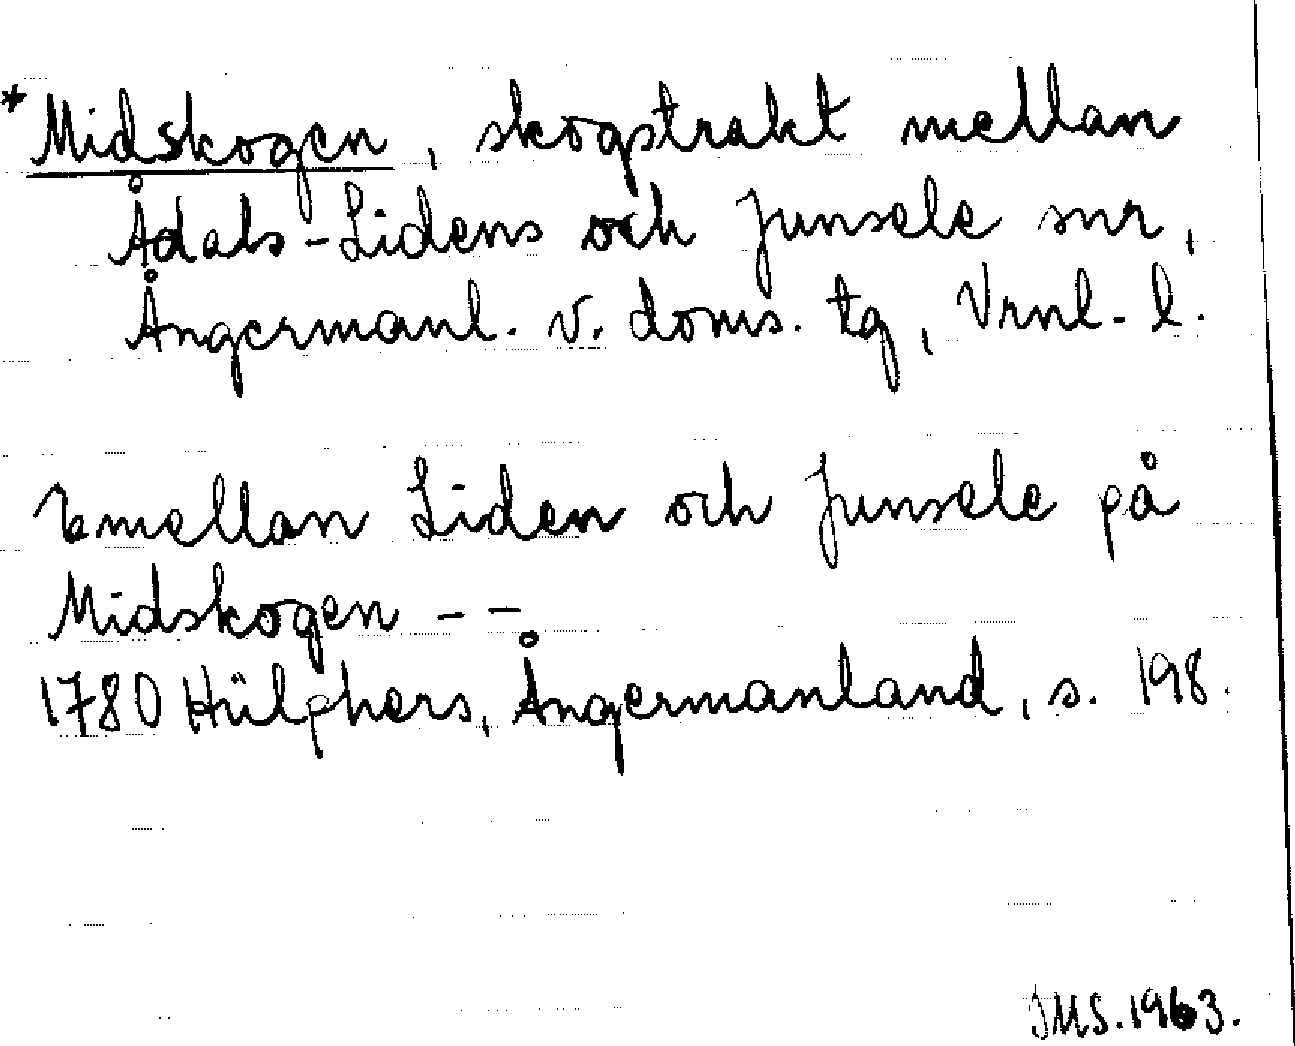 *Midskogen, skogstrakt mellan
Ådals-Lidens och Junsele snr,
Ångermanl. v. doms. tg, Vrnl. l.
emellan Liden och Junsele på
Midskogen - -
1780 Hülphers, Ångermanland, s. 198.
JMS. 1963.